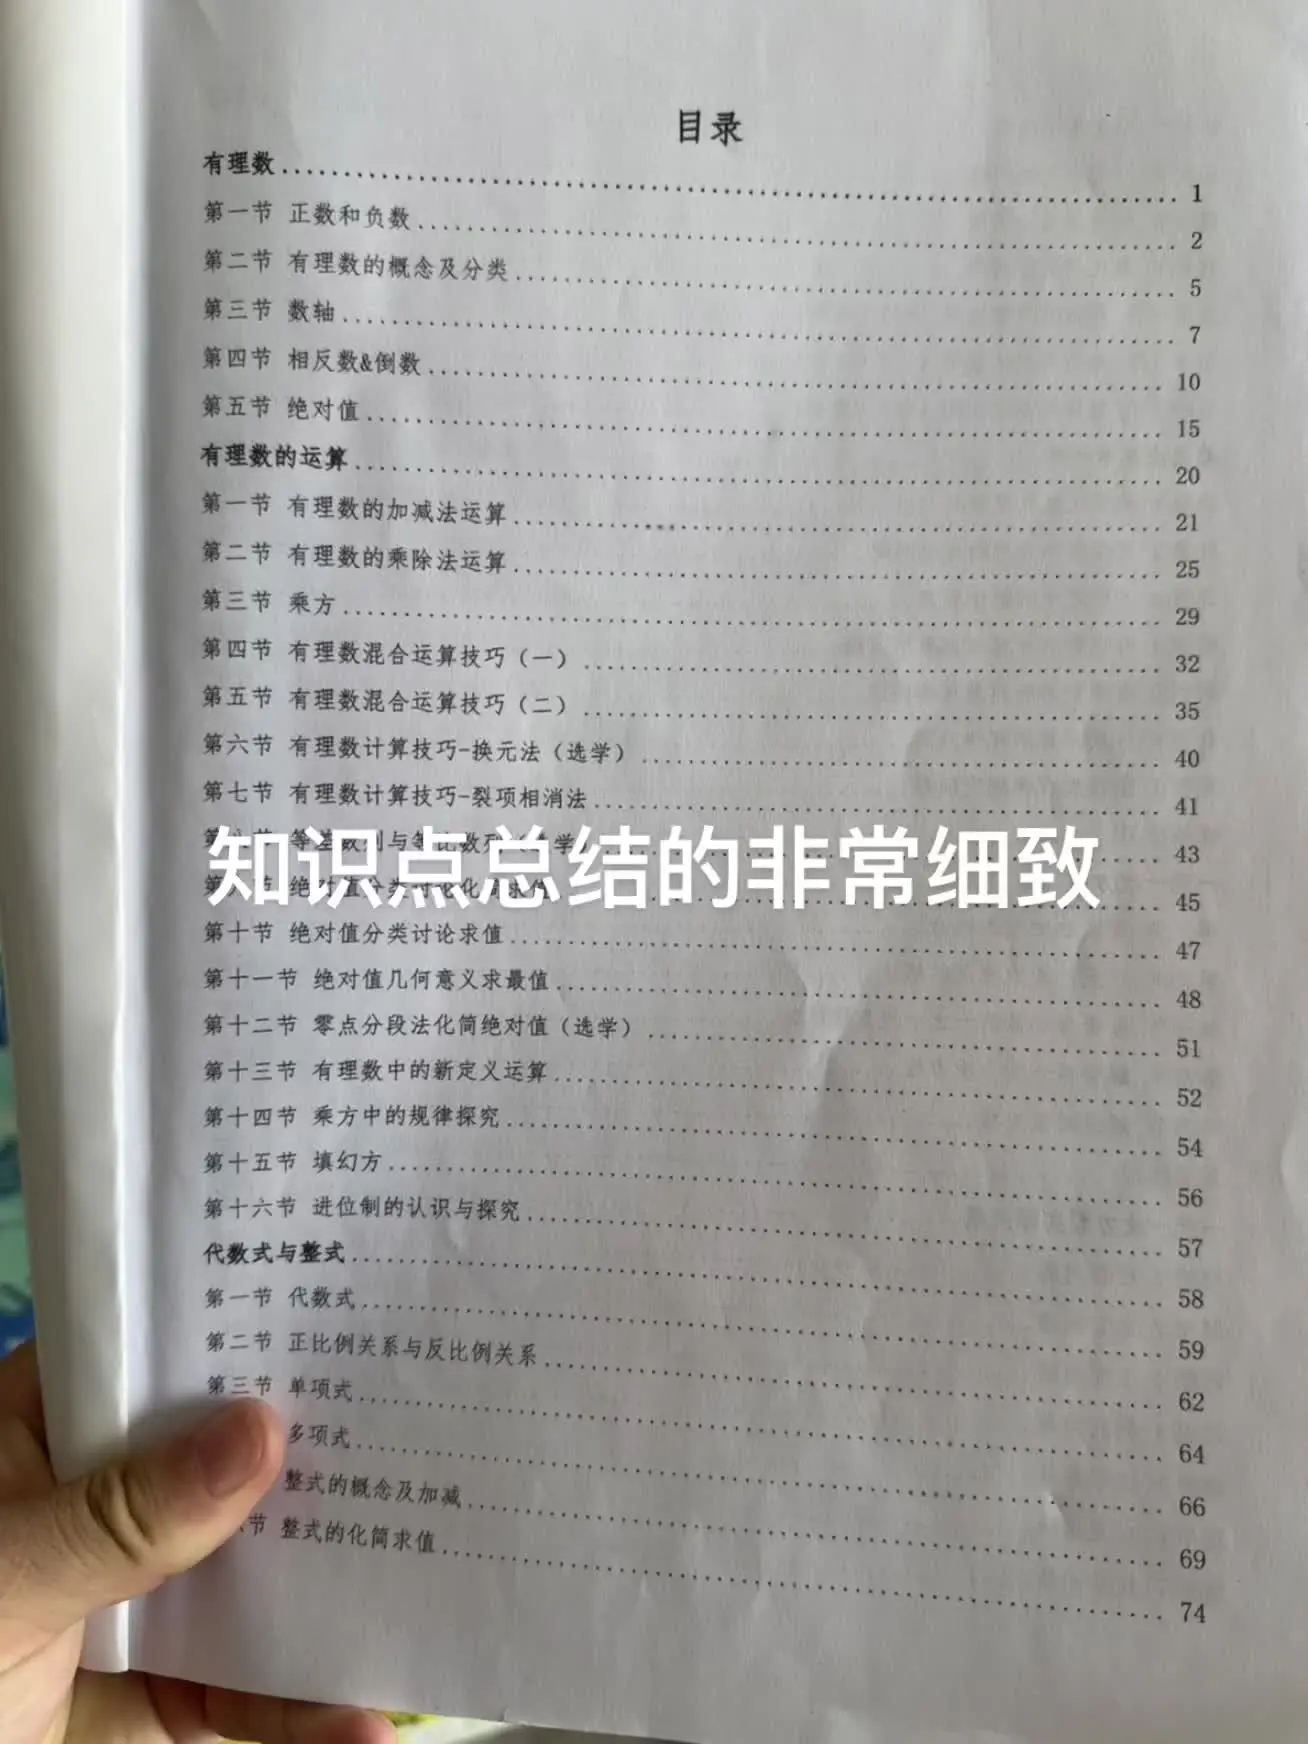 目录
有理数 1
第一节 正数和负数 2
第二节 有理数的概念及分类 5
第三节 数轴 7
第四节 相反数&倒数 10
第五节 绝对值 15
有理数的运算 20
第一节 有理数的加减法运算 21
第二节 有理数的乘除法运算 25
第三节 乘方 29
第四节 有理数混合运算技巧（一） 32
第五节 有理数混合运算技巧（二） 35
第六节 有理数计算技巧-换元法（选学） 40
第七节 有理数计算技巧-裂项相消法 41
等差数列与等比数列（选学） 43
知识点总结的非常细致
绝对值分类讨论化简求值 45
第十节 绝对值分类讨论求值 47
第十一节 绝对值几何意义求最值 48
第十二节 零点分段法化简绝对值（选学） 51
第十三节 有理数中的新定义运算 52
第十四节 乘方中的规律探究 54
第十五节 填幻方 56
第十六节 进位制的认识与探究 57
代数式与整式 58
第一节 代数式 59
第二节 正比例关系与反比例关系 62
第三节 单项式 64
多项式 66
整式的概念及加减 69
节 整式的化简求值 74